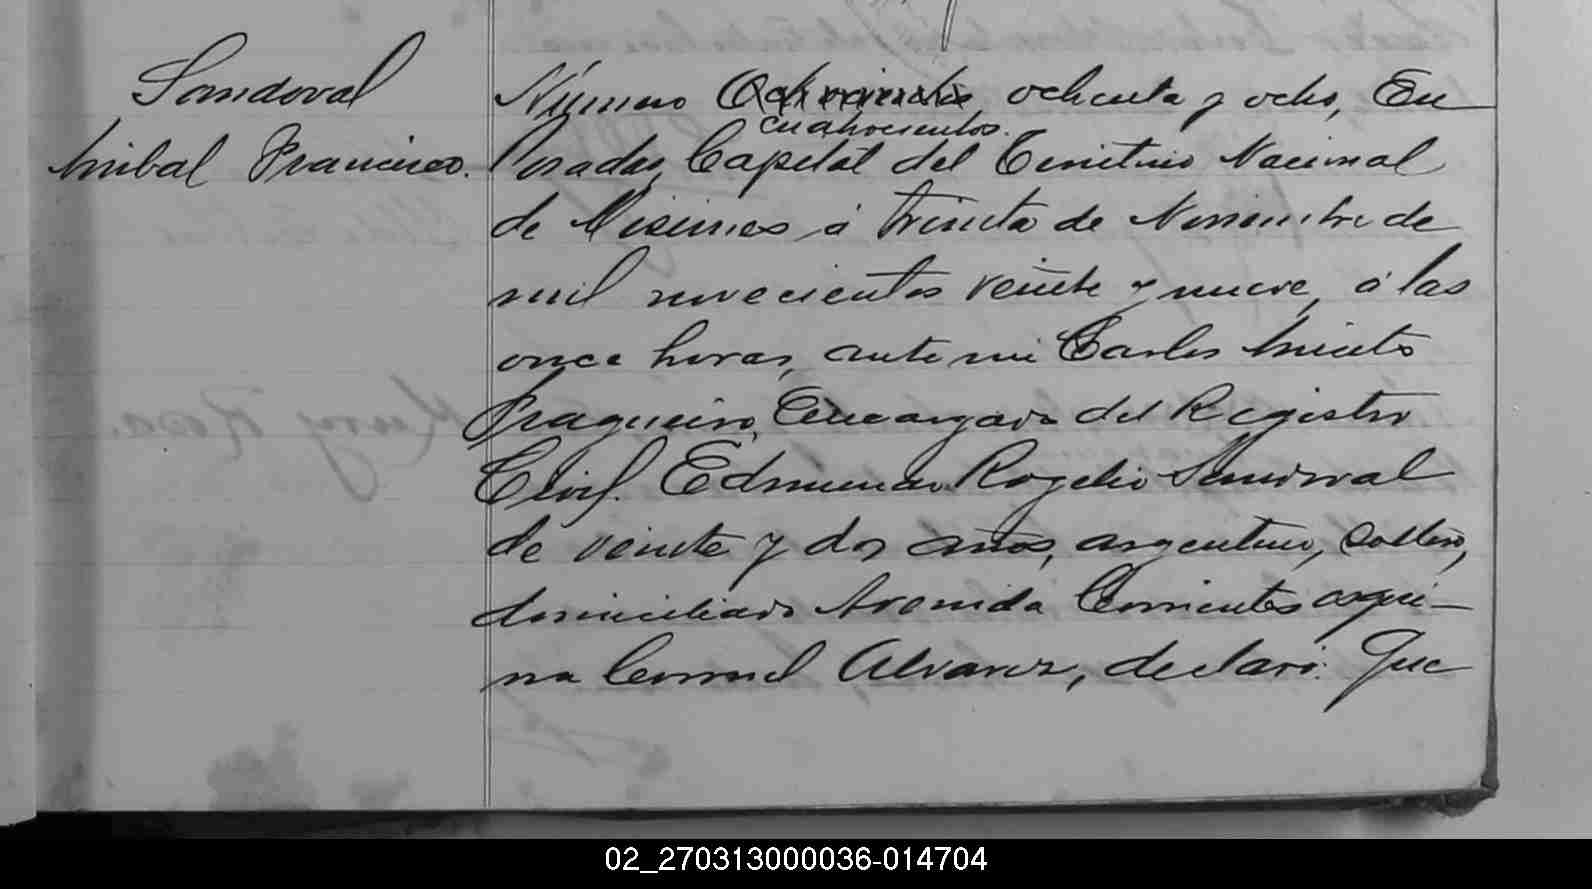 Sandoval
Anibal Francisco.
Número Ochocientos ochenta y ocho, En
cuatrocientos.
Posadas, Capital del Territorio Nacional
de Misiones á treinta de Noviembre de
mil novecientos veinte y nueve, á las
once horas, ante mi Carlos Aniceto
Fragueiro, Encargado del Registro
Civil. Edmundo Rogelio Sandoval
de veinte y dos años, argentino, soltero,
domiciliado Avenida Corrientes esqui-
na Coronel Alvarez, declaró: Que
Kury Rosa.
02_270313000036-014704